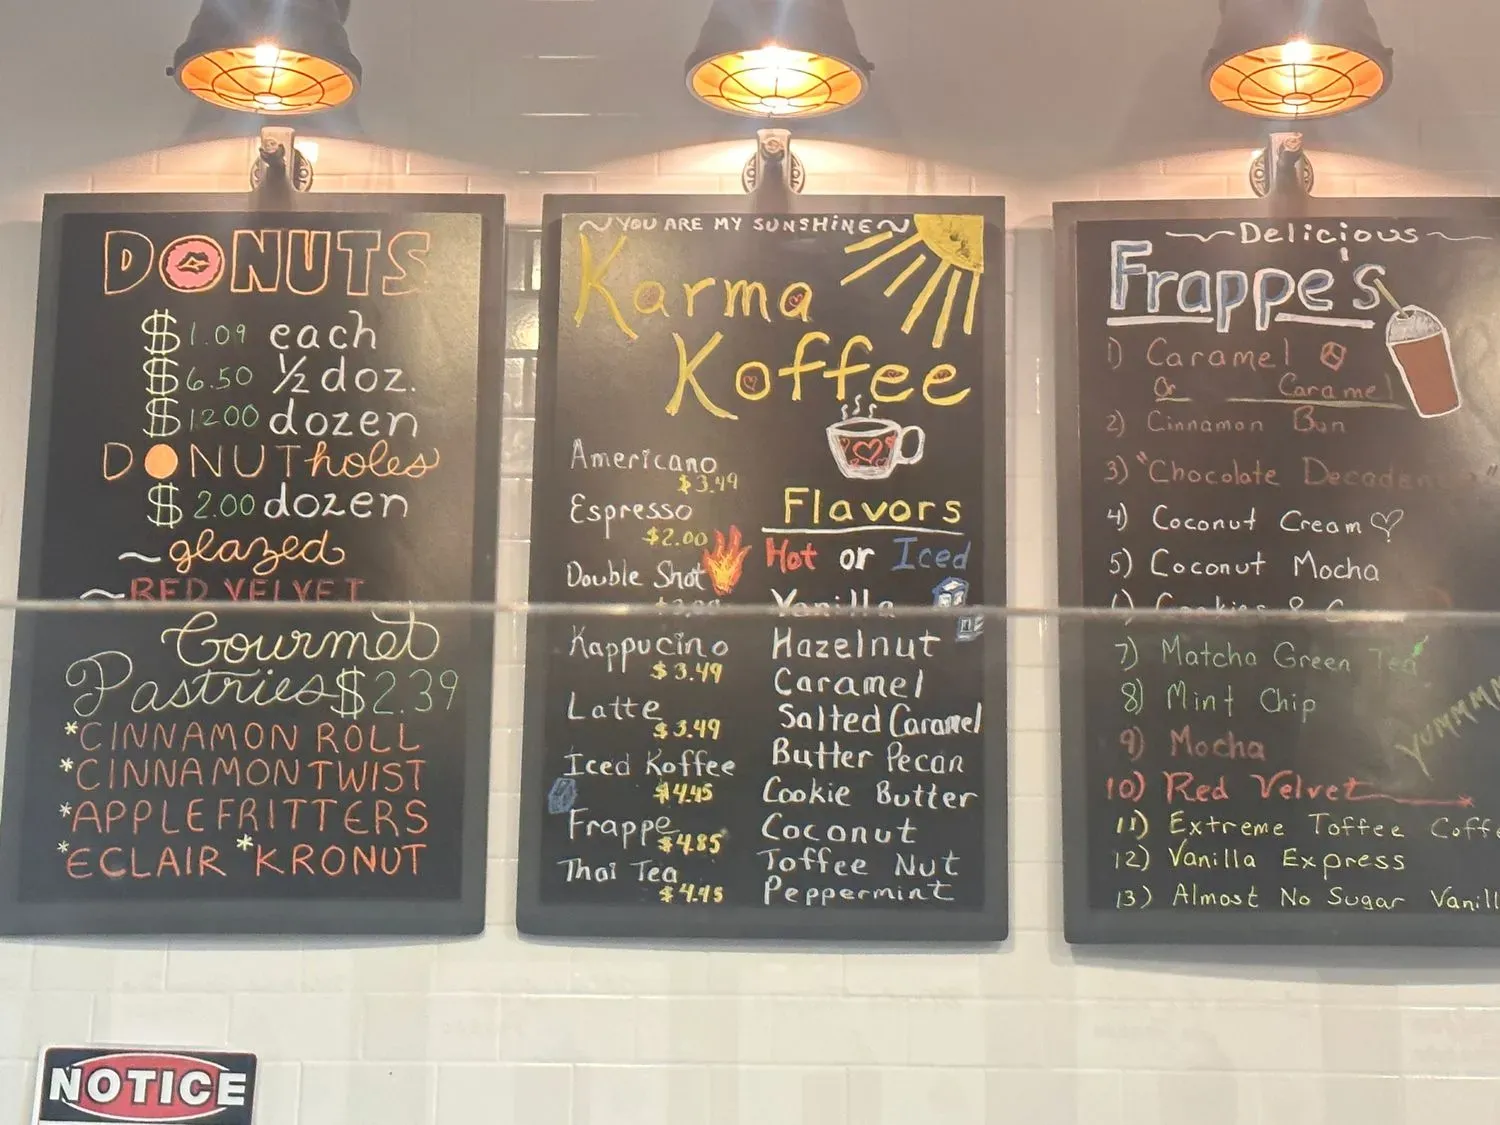 DONUTS
$1.09 each
$6.50 ½ doz.
$12.00 dozen
DONUT holes
$2.00 dozen
~glazed
~RED VELVET
Gourmet
Pastries $2.39
*CINNAMON ROLL
*CINNAMON TWIST
*APPLE FRITTERS
*ECLAIR *KRONUT
NOTICE
~YOU ARE MY SUNSHINE~
Karma
Koffee
Americano
$3.49
Espresso
$2.00
Double Shot
Kappucino
$3.49
Latte
$3.49
Iced Koffee
$4.45
Frappe
$4.85
Thai Tea
$4.45
Flavors
Hot or Iced
Vanilla
Hazelnut
Caramel
Salted Caramel
Butter Pecan
Cookie Butter
Coconut
Toffee Nut
Peppermint
~Delicious~
Frappe's
1) Caramel
Or Caramel
2) Cinnamon Bun
3) "Chocolate
4) Coconut Cream
5) Coconut Mocha
Cookies &
7) Matcha Green Tea
8) Mint Chip
9) Mocha
10) Red Velvet
11) Extreme Toffee
12) Vanilla Express
13) Almost No Sugar
YUMMMM